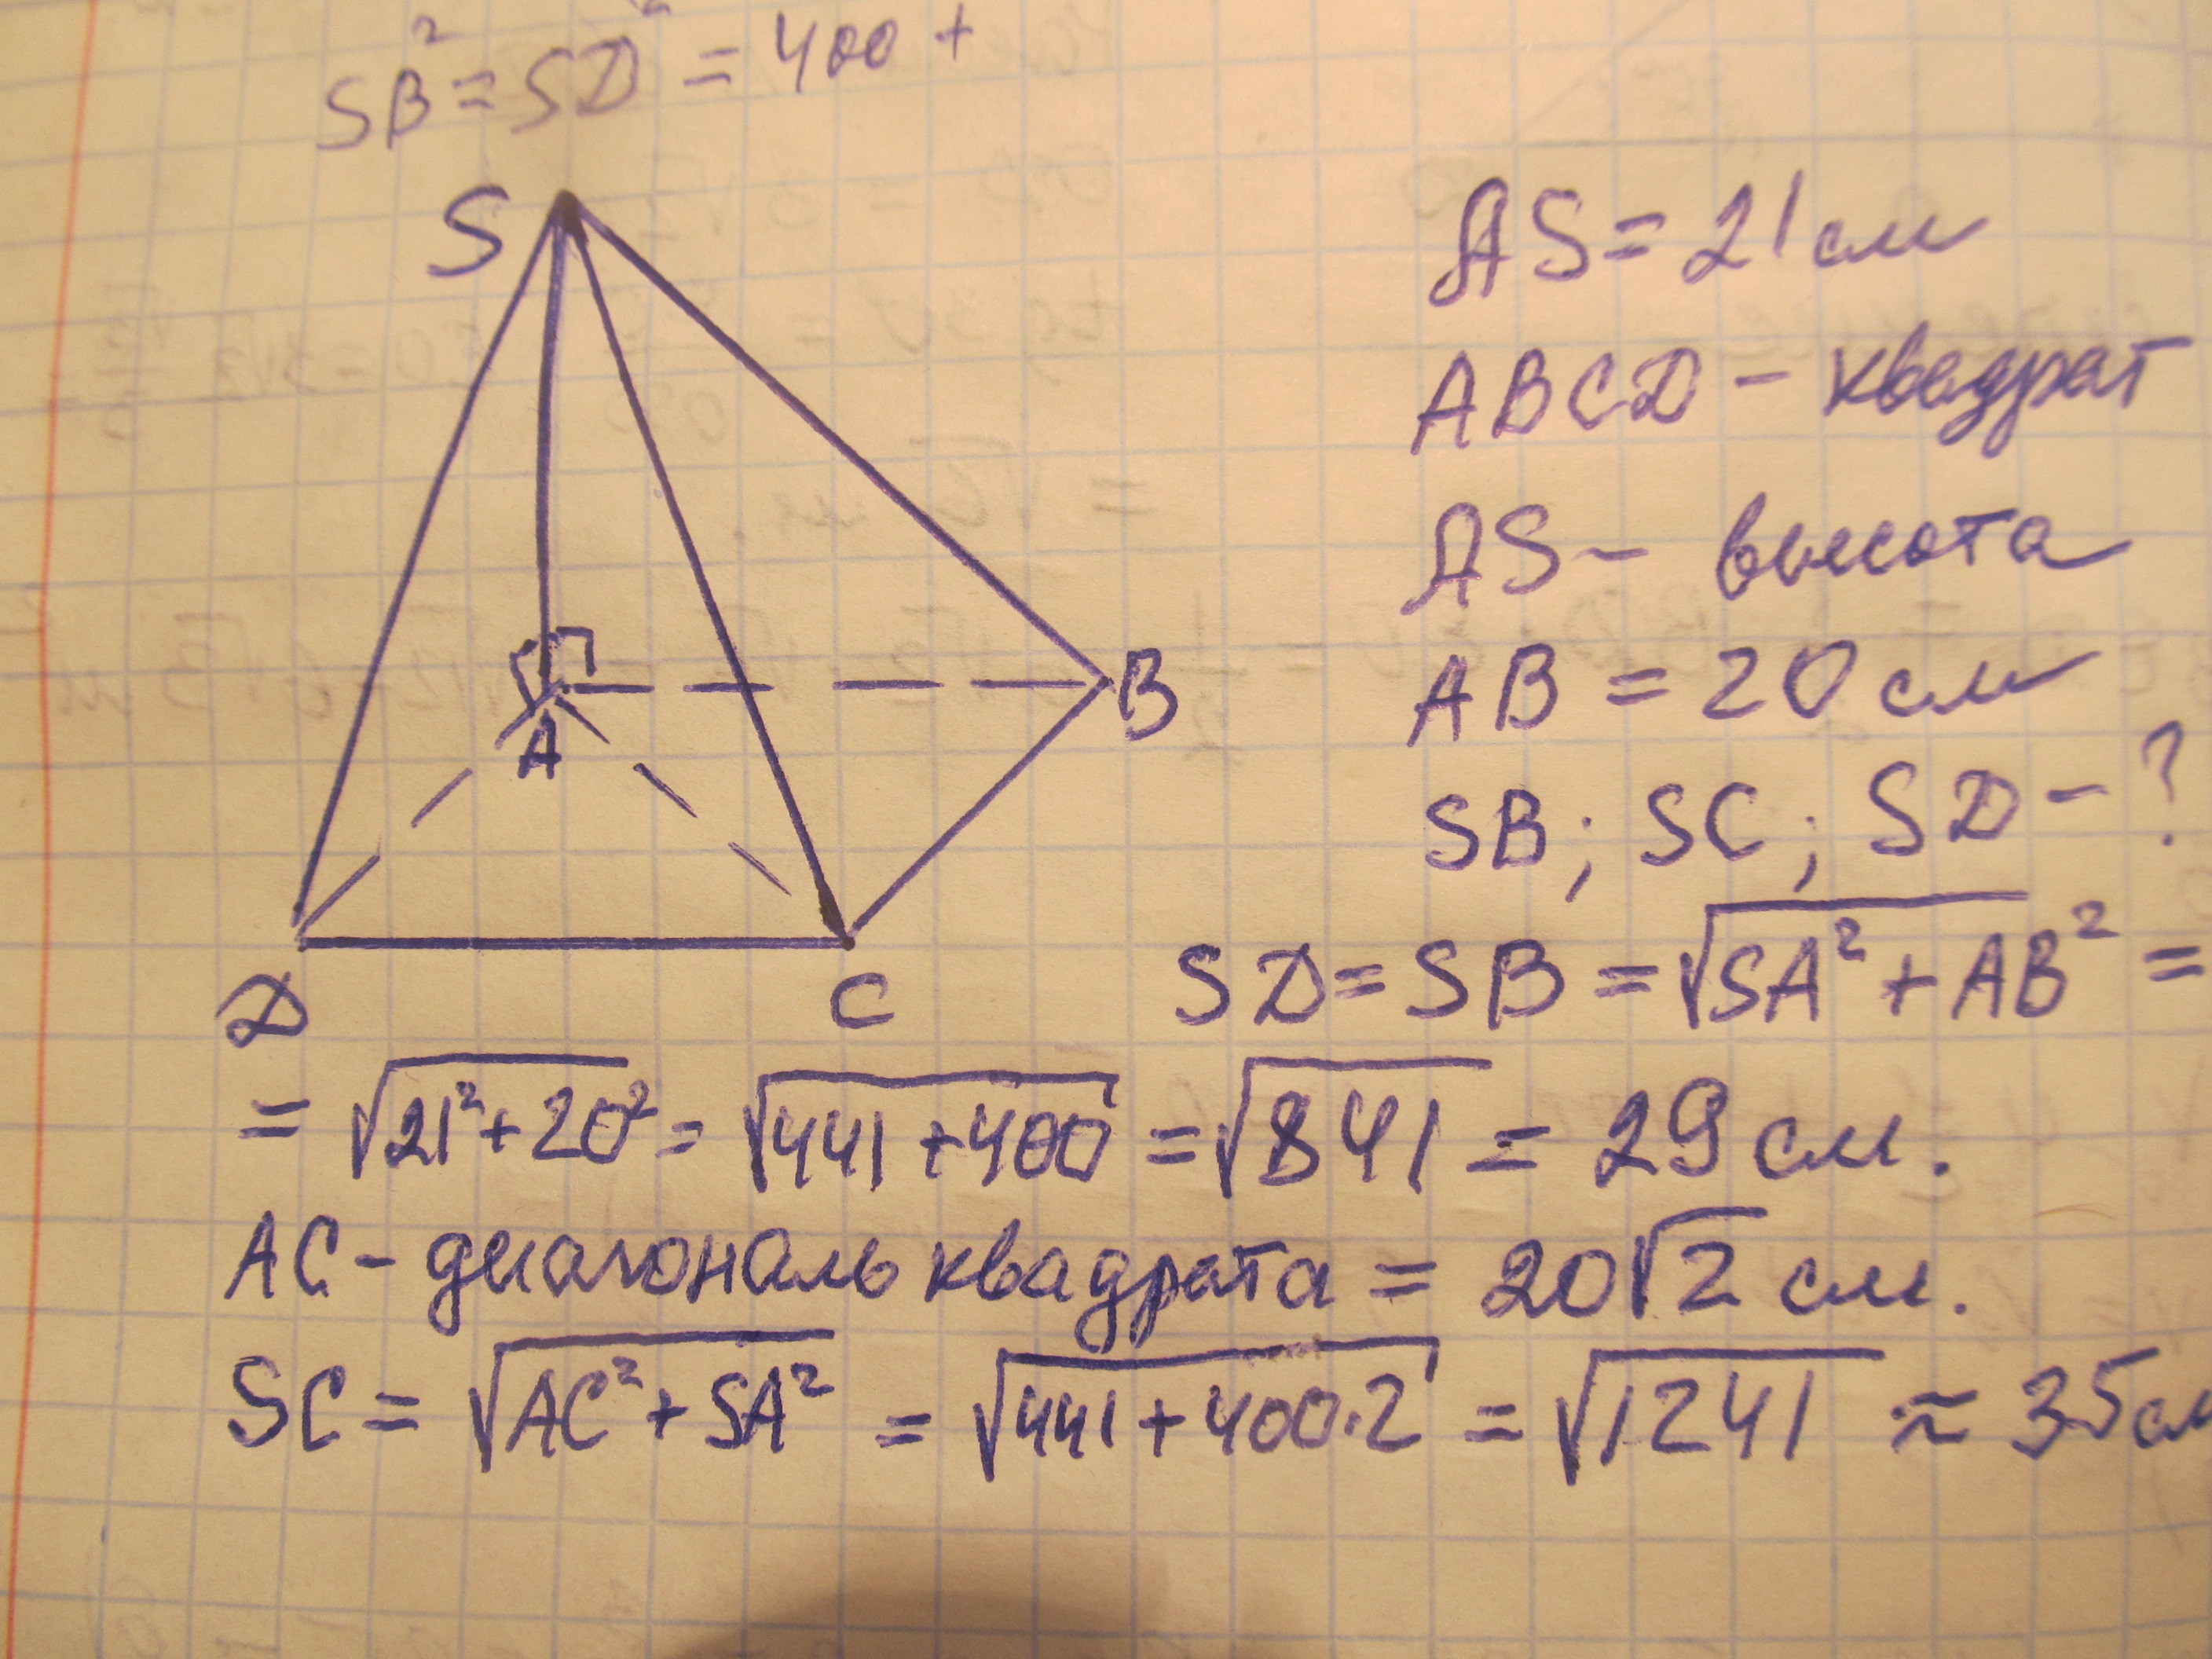 SB² = SD² = 400 +
S
A
B
D
C
AS = 21 см
ABCD - квадрат
AS - высота
AB = 20 см
SB; SC; SD - ?
SD = SB = √SA² + AB² =
= √21² + 20² = √441 + 400 = √841 = 29 см.
AC - диагональ квадрата = 20√2 см.
SC = √AC² + SA² = √441 + 400·2 = √1241 ≈ 35 см